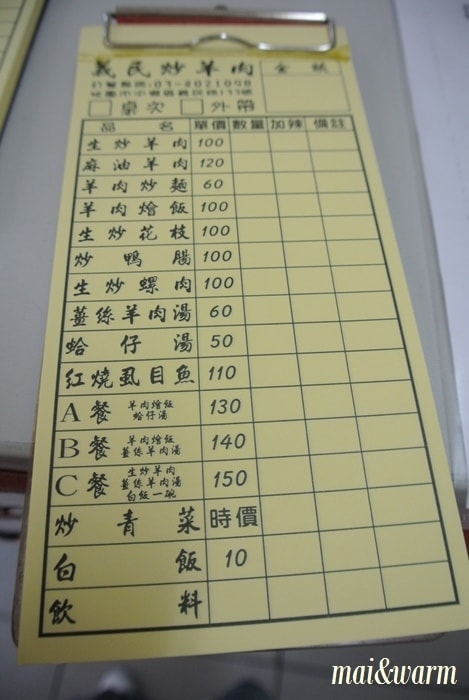 義民炒羊肉 金額
訂餐專線:03-4021098
□桌次 □外帶
品名 單價 數量 加辣 備註
生炒羊肉 100
麻油羊肉 120
羊肉炒麵 60
羊肉燴飯 100
生炒花枝 100
炒鴨腸 100
生炒螺肉 100
薑絲羊肉湯 60
蛤仔湯 50
紅燒虱目魚 110
A餐 羊肉燴飯 蛤仔湯 130
B餐 羊肉燴飯 薑絲羊肉湯 140
C餐 生炒羊肉 薑絲羊肉湯 白飯一碗 150
炒青菜 時價
白飯 10
飲料
mai&warm